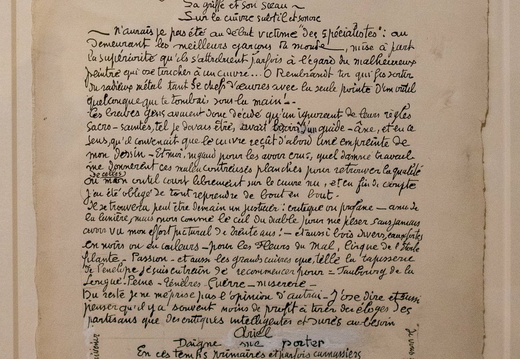 Sa griffe et son sceau ~
~ Sur le cuivre subtil et sonore
— N'aurais-je pas été au début victime "des spécialistes": au
demeurant les meilleurs garçons du monde, mise à part
la supériorité qu'ils s'attribuent parfois à l'égard du malheureux
peintre qui ose toucher à un cuivre... O Rembrandt toi qui fis sortir
du radieux métal tant de chef d'œuvres avec la seule pointe d'un outil
quelconque qui te tombait sous la main!—
Ces braves gens avaient donc décidé qu'un ignorant de leurs règles
sacro-saintes, tel je devais être, avait besoin d'un guide-âne, et en ce
sens, qu'il convenait que le cuivre reçut d'abord une empreinte de
mon dessin - Et moi, nigaud pour les avoir crus, quel damné travail
me donnèrent ces malencontreuses planches pour retrouver la qualité
de celles
où mon outil court librement sur le cuivre nu, et en fin de compte
j'ai été obligé de tout reprendre de bout en bout.
Je trouverai peut être demain un justicier: critique ou profane — ami de
la lumière, mais noir comme le cul du diable pour me peser sans jamais
avoir vu mon effort pictural de trente ans! — et aussi bois divers, eaux fortes
en noirs ou en couleurs — pour les Fleurs du Mal, Cirque de l'Étoile
filante - Passion - et aussi les grands cuivres que, telle la tapisserie
de Pénélope je suis en train de recommencer pour = Faubourg de la
Longue Peine - Ténèbres - Guerre - miserere -
Du reste je ne méprise pas l'opinion d'autrui - J'ose dire et aussi
penser qu'il y a souvent moins de profit à tirer des éloges des
partisans que des critiques intelligentes et dures au besoin
Ariel
Daigne me porter
En ces temps primaires et parfois cumassiers